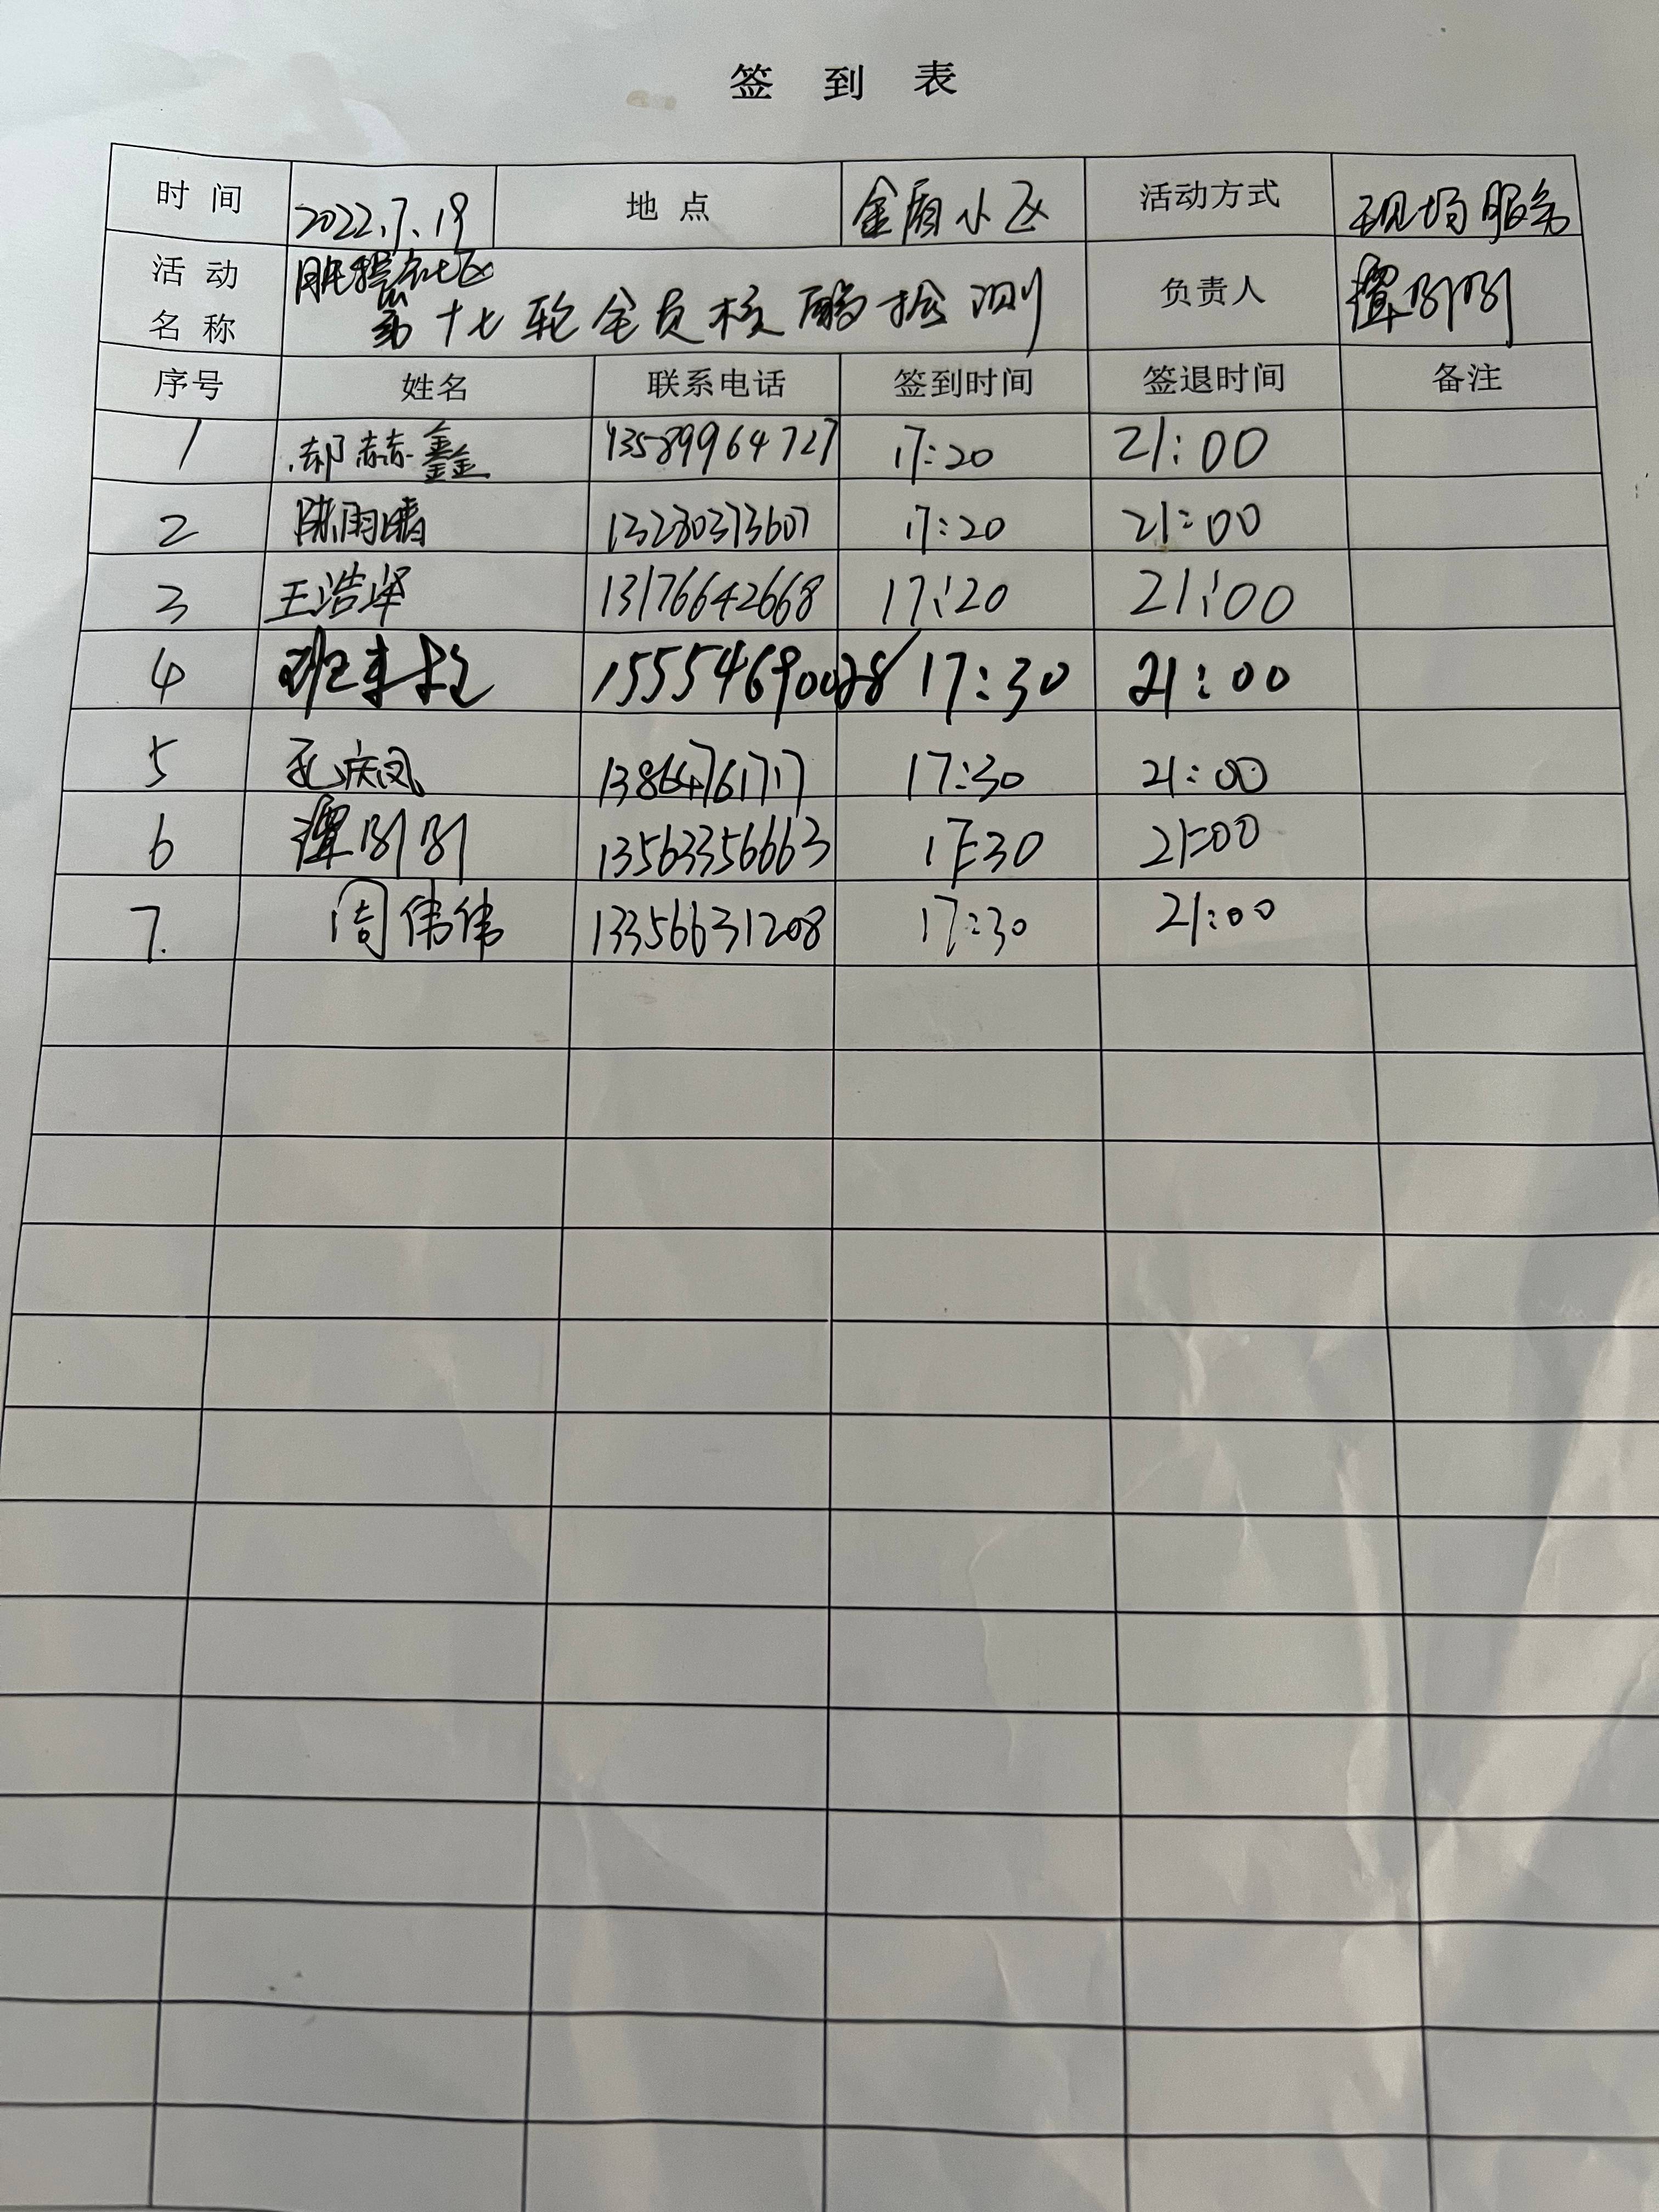 签 到 表
时 间 2022.7.19 地 点 金盾小区 活动方式 现场服务
活 动 名 称 社区 负责人 谭
第十七轮全员核酸检测
序号 姓名 联系电话 签到时间 签退时间 备注
1 郝赫鑫 13589964727 17:20 21:00
2 陈雨晴 13280373607 17:20 21:00
3 王浩泽 13176642668 17:20 21:00
4 班 15554690028 17:30 21:00
5 庆凤 13864761717 17:30 21:00
6 谭 13563356663 17:30 21:00
7. 周伟伟 13356631208 17:30 21:00